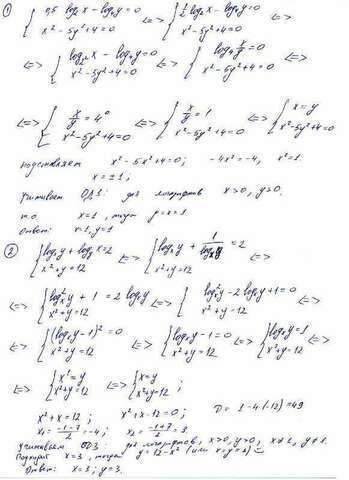 ① { 0,5 log₂x - log₄y = 0 <=> { ½ log₂x - log₄y = 0 <=>
{ x² - 5y² + 4 = 0 { x² - 5y² + 4 = 0
<=> { log₂²x - log₄y = 0 <=> { log₄ x/y = 0 <=>
{ x² - 5y² + 4 = 0 { x² - 5y² + 4 = 0
<=> { x/y = 4⁰ <=> { x/y = 1 <=> { x = y
{ x² - 5y² + 4 = 0 { x² - 5y² + 4 = 0 { x² - 5y² + 4 = 0
подставляем x² - 5x² + 4 = 0; -4x² = -4, x² = 1.
x = ±1;
учитываем ОДЗ: для логарифмов x > 0, y > 0.
т.о. x = 1, тогда y = x = 1
ответ: x = 1, y = 1
② { logₓy + log_y x = 2 <=> { logₓy + 1/logₓy = 2 <=>
{ x² + y = 12 { x² + y = 12
<=> { logₓ²y + 1 = 2 logₓy <=> { logₓ²y - 2 logₓy + 1 = 0 <=>
{ x² + y = 12 { x² + y = 12
<=> { (logₓy - 1)² = 0 <=> { logₓy - 1 = 0 <=> { logₓy = 1 <=>
{ x² + y = 12 { x² + y = 12 { x² + y = 12
<=> { x¹ = y <=> { x = y ;
{ x² + y = 12 { x² + y = 12
x² + x = 12 ; x² + x - 12 = 0 ; D = 1 - 4·(-12) = 49
x₁ = (-1-7)/2 = -4 ; x₂ = (-1+7)/2 = 3.
учитываем ОДЗ: для логарифмов, x > 0, y > 0, x ≠ 1, y ≠ 1.
Подходит x = 3, тогда y = 12 - x² (или x = y = 3)
Ответ: x = 3; y = 3.